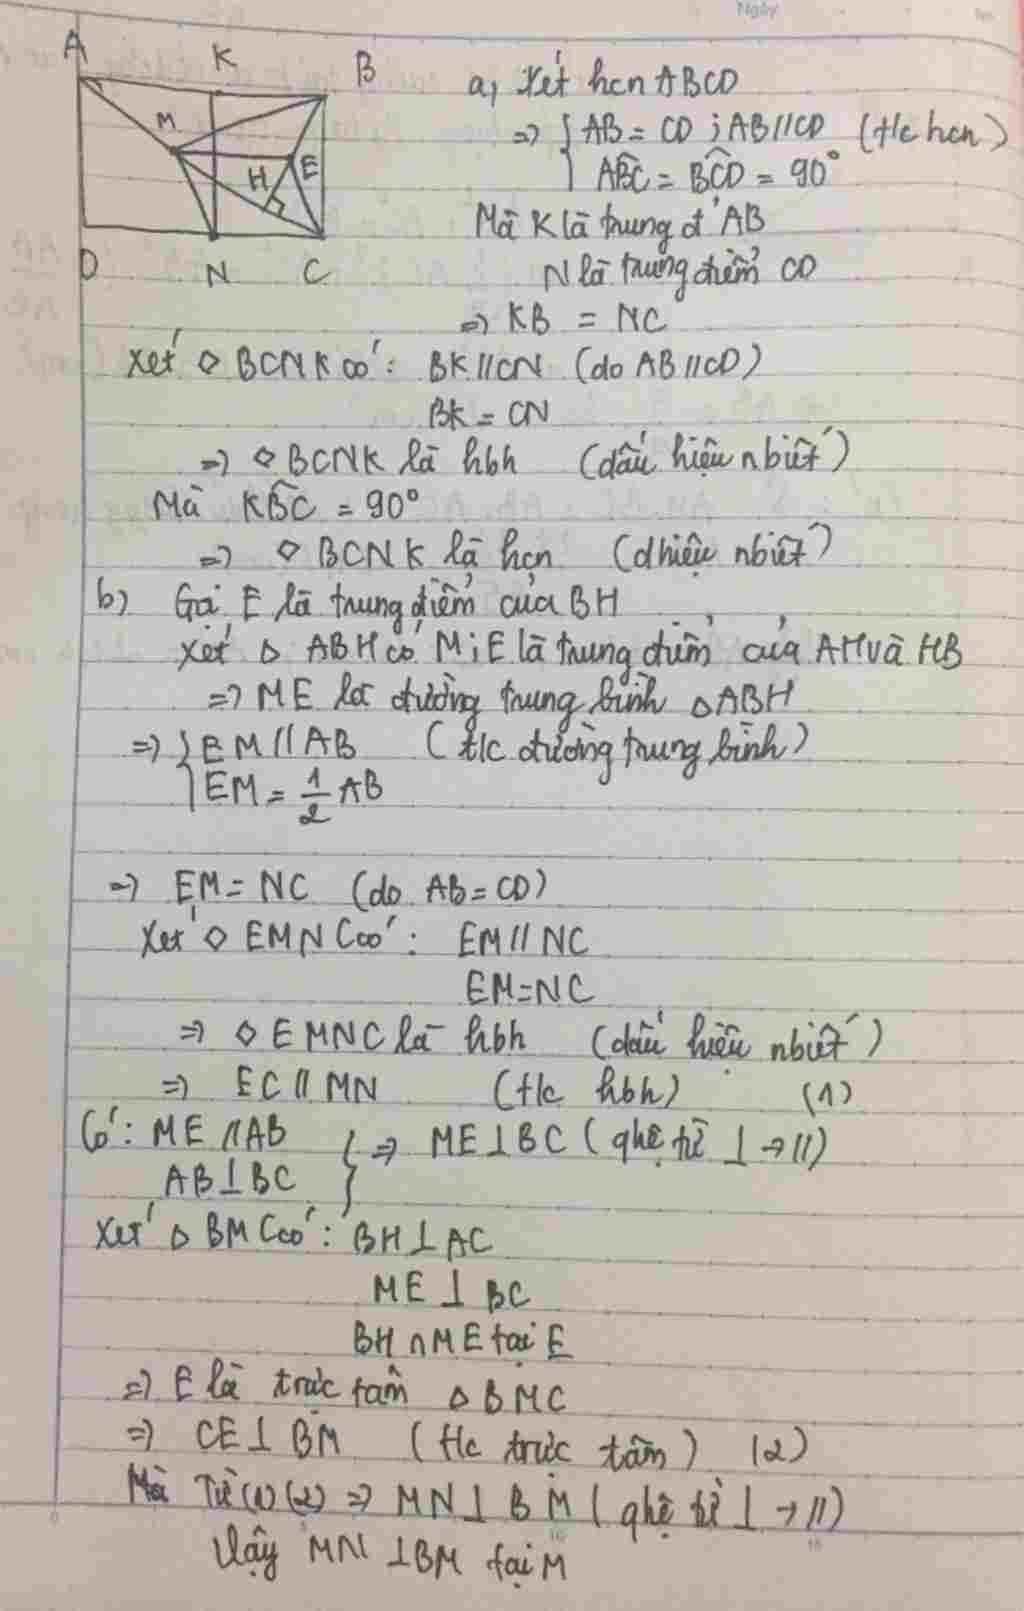 Ngày
A K B
M H E
D N C
a, Xét hcn ABCD
=> { AB = CD ; AB // CD (t/c hcn)
ABC = BCD = 90°
Mà K là trung đ' AB
N là trung điểm CD
=> KB = NC
Xét ◇ BCNK có : BK // CN (do AB // CD)
BK = CN
=> ◇ BCNK là hbh (dấu hiệu nbiết)
Mà KBC = 90°
=> ◇ BCNK là hcn (dhiệu nbiết)
b) Gọi E là trung điểm của BH
Xét Δ ABH có M ; E là trung điểm của AH và HB
=> ME là đường trung bình Δ ABH
=> { EM // AB (t/c đường trung bình)
EM = 1/2 AB
=> EM = NC (do AB = CD)
Xét ◇ EMNC có : EM // NC
EM = NC
=> ◇ EMNC là hbh (dấu hiệu nbiết)
=> EC // MN (t/c hbh) (1)
Có : ME // AB
AB ⊥ BC } => ME ⊥ BC ( qhệ từ ⊥ → //)
Xét Δ BMC có : BH ⊥ AC
ME ⊥ BC
BH ∩ ME tại E
=> E là trực tâm Δ BMC
=> CE ⊥ BM (t/c trực tâm) (2)
Mà Từ (1) (2) => MN ⊥ BM ( qhệ từ ⊥ → //)
Vậy MN ⊥ BM tại M